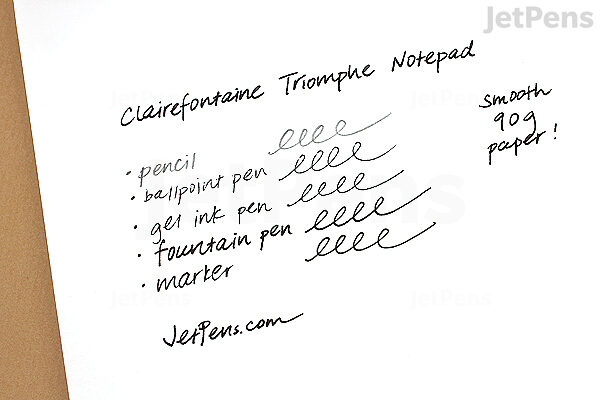 JetPens
Clairefontaine Triomphe Notepad
smooth
90g
paper!
• pencil
• ballpoint pen
• gel ink pen
• fountain pen
• marker
JetPens.com
JetPens
JetPens
JetPens
JetPens
JetPens